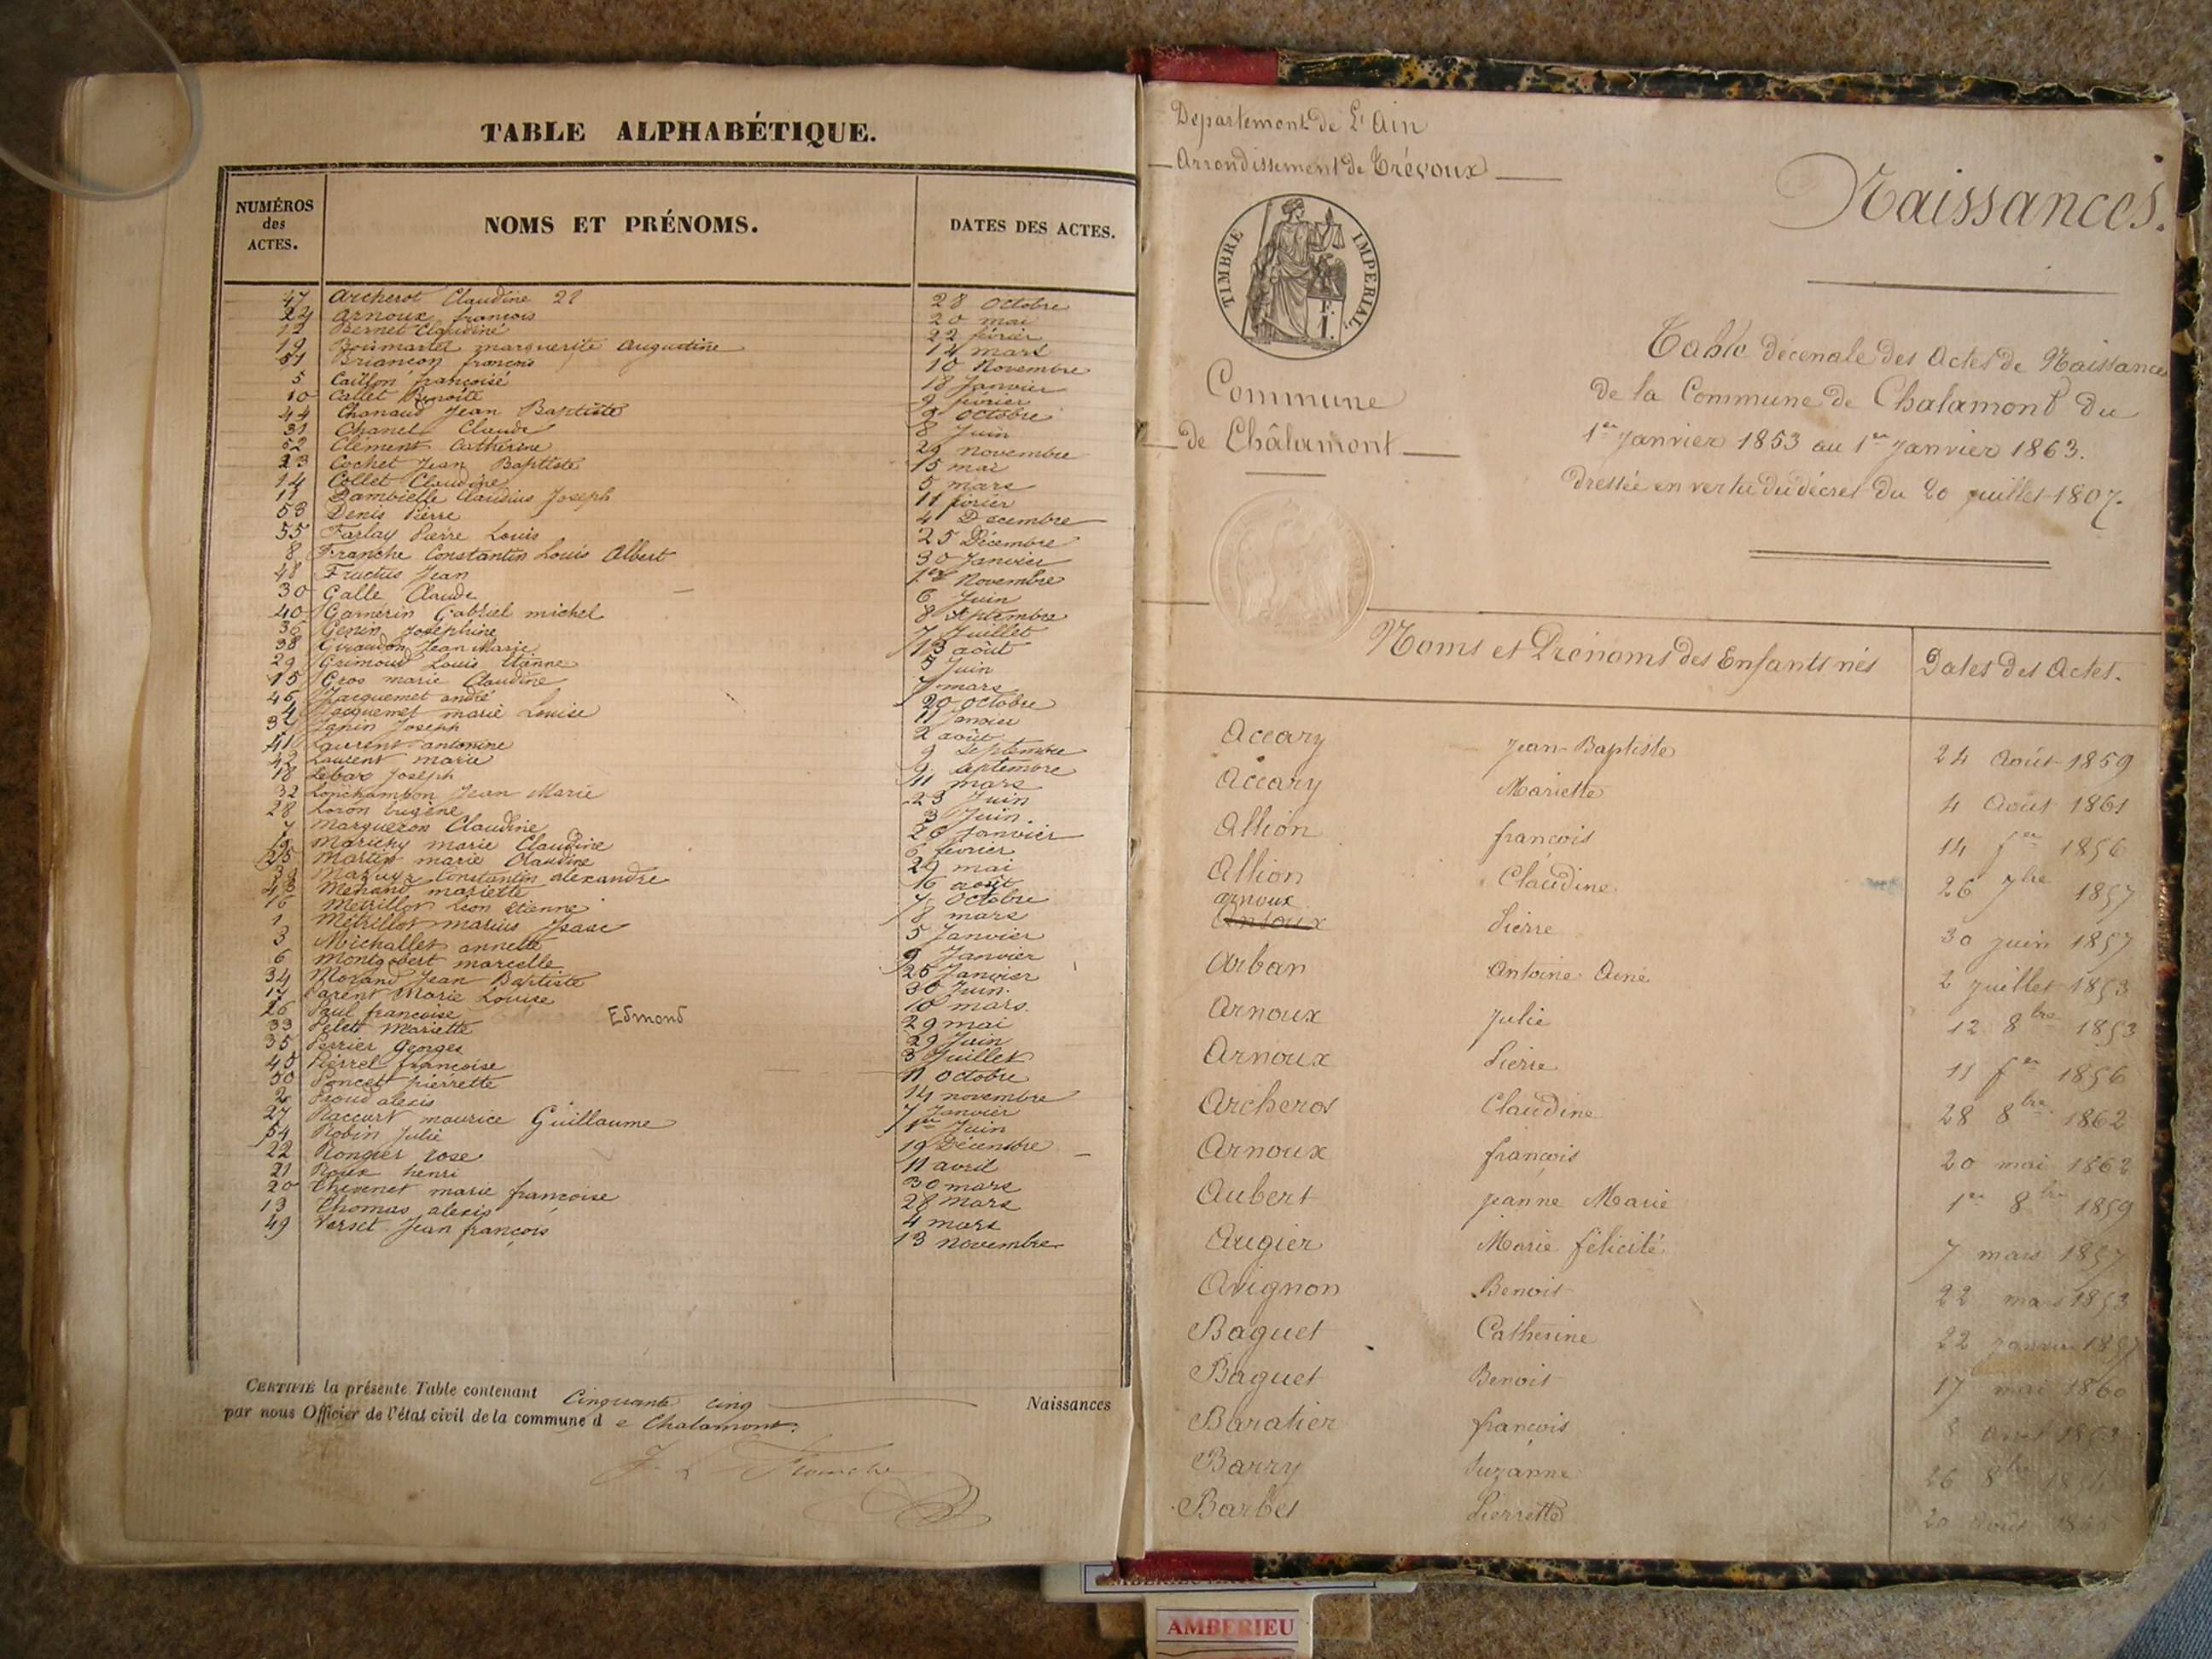 TABLE ALPHABÉTIQUE.
NUMÉROS des ACTES.
NOMS ET PRÉNOMS.
DATES DES ACTES.
47 Archerot Claudine 28 Octobre
24 Arnoux françois 20 mai
12 Bernet Claudine 22 février
19 marguerite Augustine 14 mars
51 Briançon françois 10 Novembre
5 Caillon françoise 18 Janvier
10 Callet Benoîte 9 février
44 Chanaud Jean Baptiste 9 Octobre
31 Chanel Claude 8 Juin
52 Clément Catherine 29 novembre
23 Cochet Jean Baptiste 15 mai
14 Collet Claudine 5 mars
11 Dambielle Claudius Joseph 11 février
53 Denis Pierre 4 Décembre
55 Farlay Pierre Louis 25 Décembre
8 Franche Constantin Louis Albert 30 Janvier
48 Fructus Jean 1er Novembre
30 Galle Claude 6 Juin
40 Gamerin Gabriel michel 8 Septembre
36 Genin Joséphine 7 Juillet
38 Giraudon Jean Marie 13 août
29 Grimoud Louis Etienne 5 Juin
15 Gros marie Claudine 7 mars
46 Jacquemet andré 20 octobre
4 Jacquemet marie Louise 11 Janvier
37 Janin Joseph 2 août
41 Laurent antonine 9 Septembre
42 Laurent marie 9 Septembre
18 Lebas Joseph 11 mars
32 Lonchampon Jean Marie 23 Juin
28 Loron Eugène 3 Juin.
7 Margueron Claudine 26 Janvier
9 Marichy marie Claudine 6 février
25 Martin marie Claudine 29 mai
39 Mazuyr Constantin alexandre 16 août
43 Menand mariette 7 Octobre
16 Métrillot Léon Etienne 8 mars
1 Métrillot marius Isaac 5 Janvier
3 Michallet annette 9 Janvier
6 Montgobert marcelle 25 Janvier
34 Morand Jean Baptiste 30 Juin.
17 Parent Marie Louise 10 mars.
26 Paul françoise Edmond 29 mai
33 Pelet Mariette 29 Juin
35 Perrier Georges 3 Juillet
45 Pierrel françoise 11 Octobre
50 Poncet pierrette 14 novembre
2 Proud alexis 7 Janvier
27 Raccurt maurice Guillaume 1er Juin
54 Robin Julie 19 Décembre
22 Rongier rose 11 avril
21 Roux henri 30 mars
20 Thevenet marie françoise 28 Mars
13 Thomas alexis 4 mars
49 Verset Jean françois 13 novembre
CERTIFIÉ la présente Table contenant Cinquante cinq Naissances
par nous Officier de l'état civil de la commune de Chalamont.
J. L. Franche
Département de L'Ain
Arrondissement de Trévoux
TIMBRE IMPERIAL
F. 1.
Commune
de Châlamont
Naissances.
Table décenale des Actes de Naissances
de la Commune de Chalamont du
1er Janvier 1853 au 1er Janvier 1863.
Dressée en vertu du décret du 20 juillet 1807.
Noms et Prénoms des Enfants nés
Dates des Actes.
Accary Jean-Baptiste 24 Août 1859
Accary Mariette 4 Août 1861
Allion françois 14 fer 1856
Allion Claudine 26 7bre 1857
arnoux
Pierre 30 juin 1857
Arban Antoine Aimé 2 juillet 1853
Arnoux Julie 12 8bre 1853
Arnoux Pierre 11 fer 1856
Archerot Claudine 28 8bre 1862
Arnoux françois 20 mai 1862
Aubert jeanne Marie 1er 8bre 1859
Augier Marie félicité 7 mars 1857
Avignon Benoit 22 mars 1853
Baguet Catherine 22 janvier 1857
Baguet Benoit 17 mai 1860
Baratier françois
Barry Suzanne 26 8bre
Barbet Pierrette 20 Août
AMBERIEU